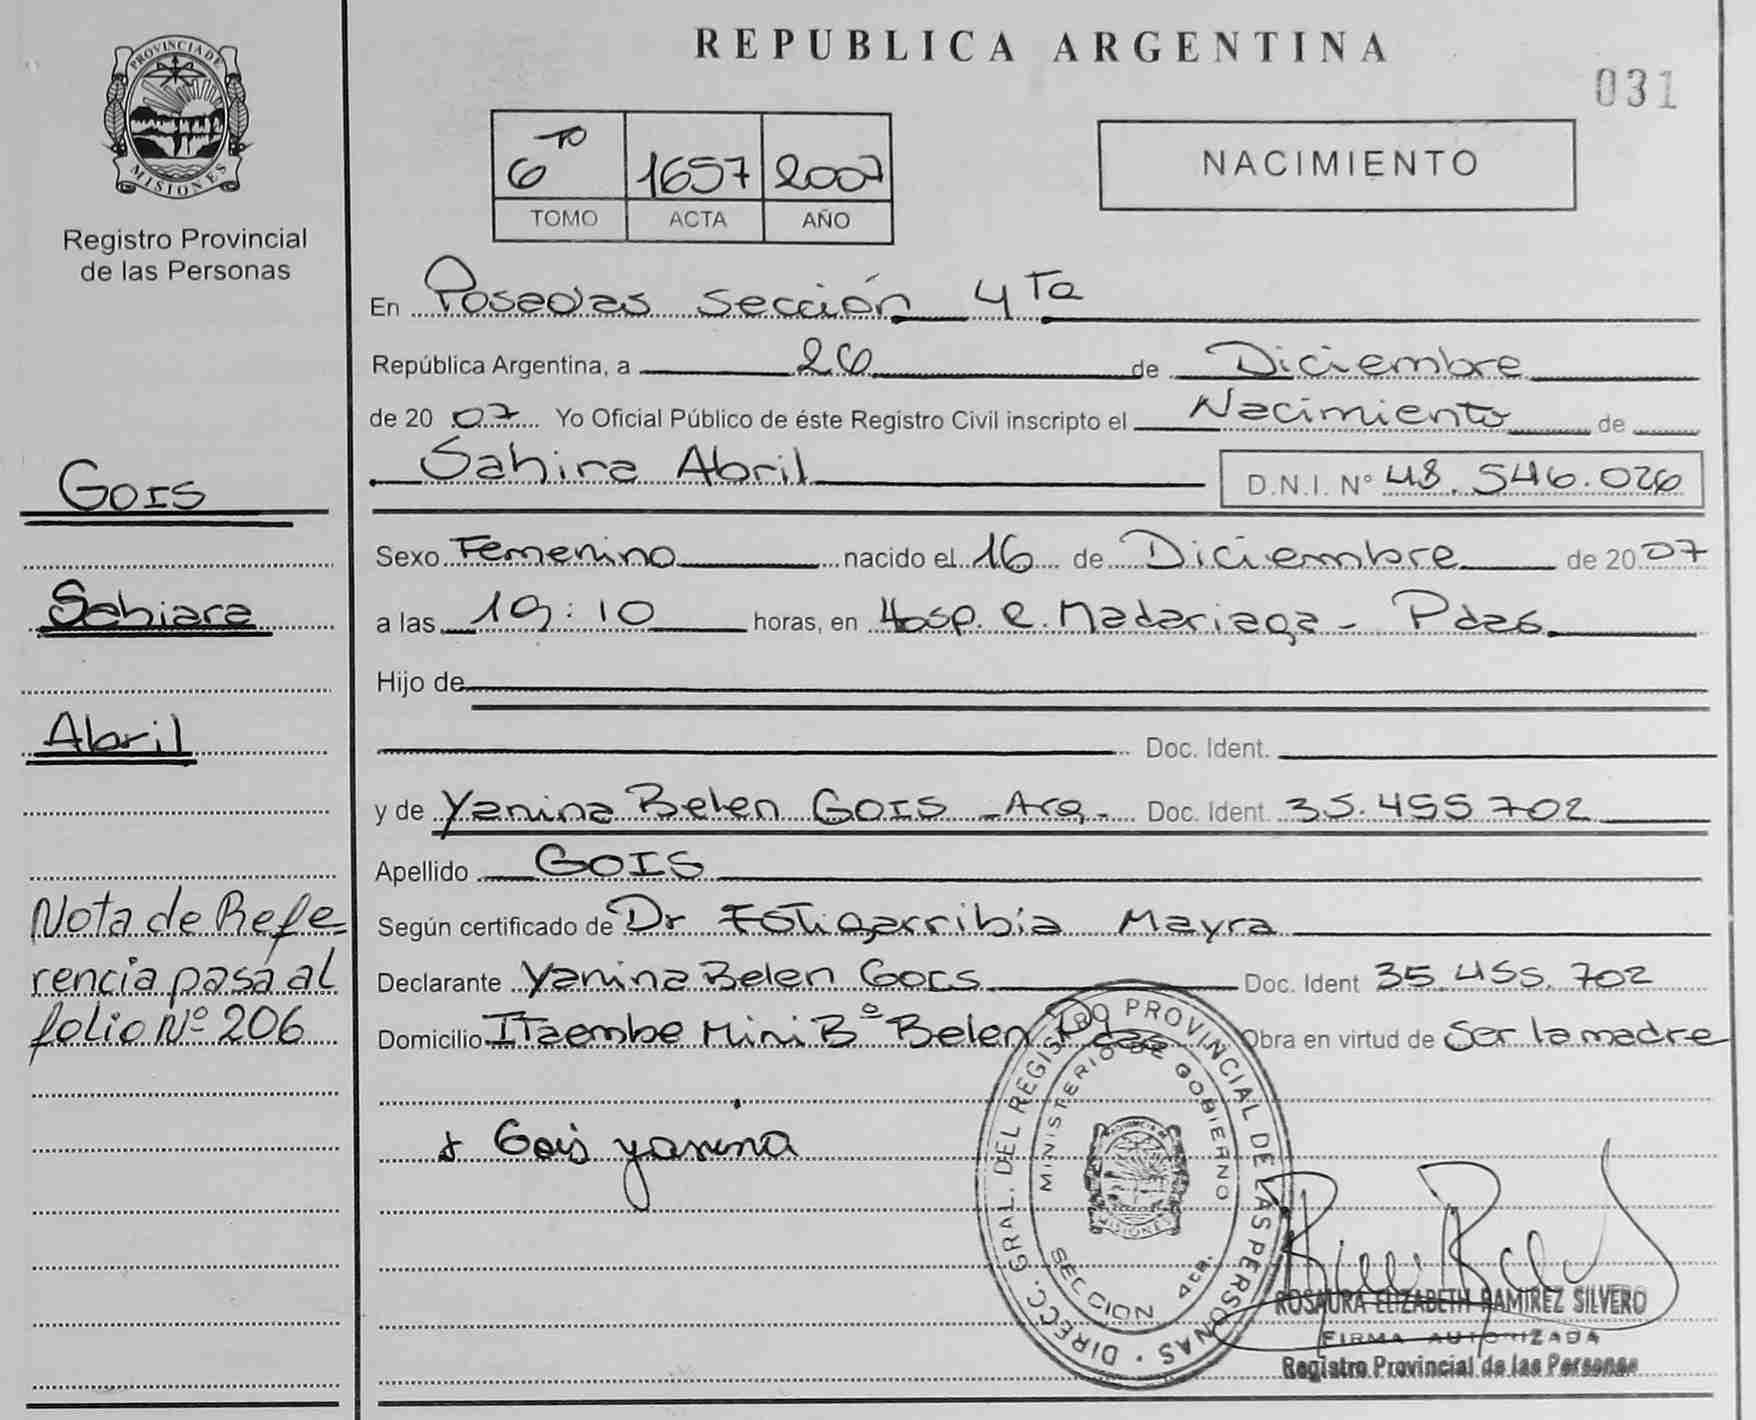 PROVINCIA DE
MISIONES
Registro Provincial
de las Personas
REPUBLICA ARGENTINA
031
6 TO 1657 2007
TOMO ACTA AÑO
NACIMIENTO
En Posadas sección 4 Ta
República Argentina, a 26 de Diciembre
de 20 07 Yo Oficial Público de éste Registro Civil inscripto el Nacimiento de
Sahira Abril D.N.I. N° 48.546.026
Gois
Sexo Femenino nacido el 16 de Diciembre de 20 07
Sahiara
a las 19:10 horas, en Hosp. R. Madariaga - Pdas.
Hijo de
Abril
Doc. Ident.
y de Yanina Belen GOIS - Arg.- Doc. Ident. 35.455 702
Apellido GOIS
Nota de Refe-
rencia pasa al
folio Nº 206
Según certificado de Dr Estigarribia Mayra
Declarante Yanina Belen Gois Doc. Ident 35.455.702
Domicilio ITaembe Mini Bº Belen Pdas Obra en virtud de Ser la madre
Gois yanina
DIRECC. GRAL. DEL REGISTRO PROVINCIAL DE LAS PERSONAS
MINISTERIO DE GOBIERNO
SECCION 4ta.
MISIONES
ROSAURA ELIZABETH RAMIREZ SILVERO
FIRMA AUTORIZADA
Registro Provincial de las Personas